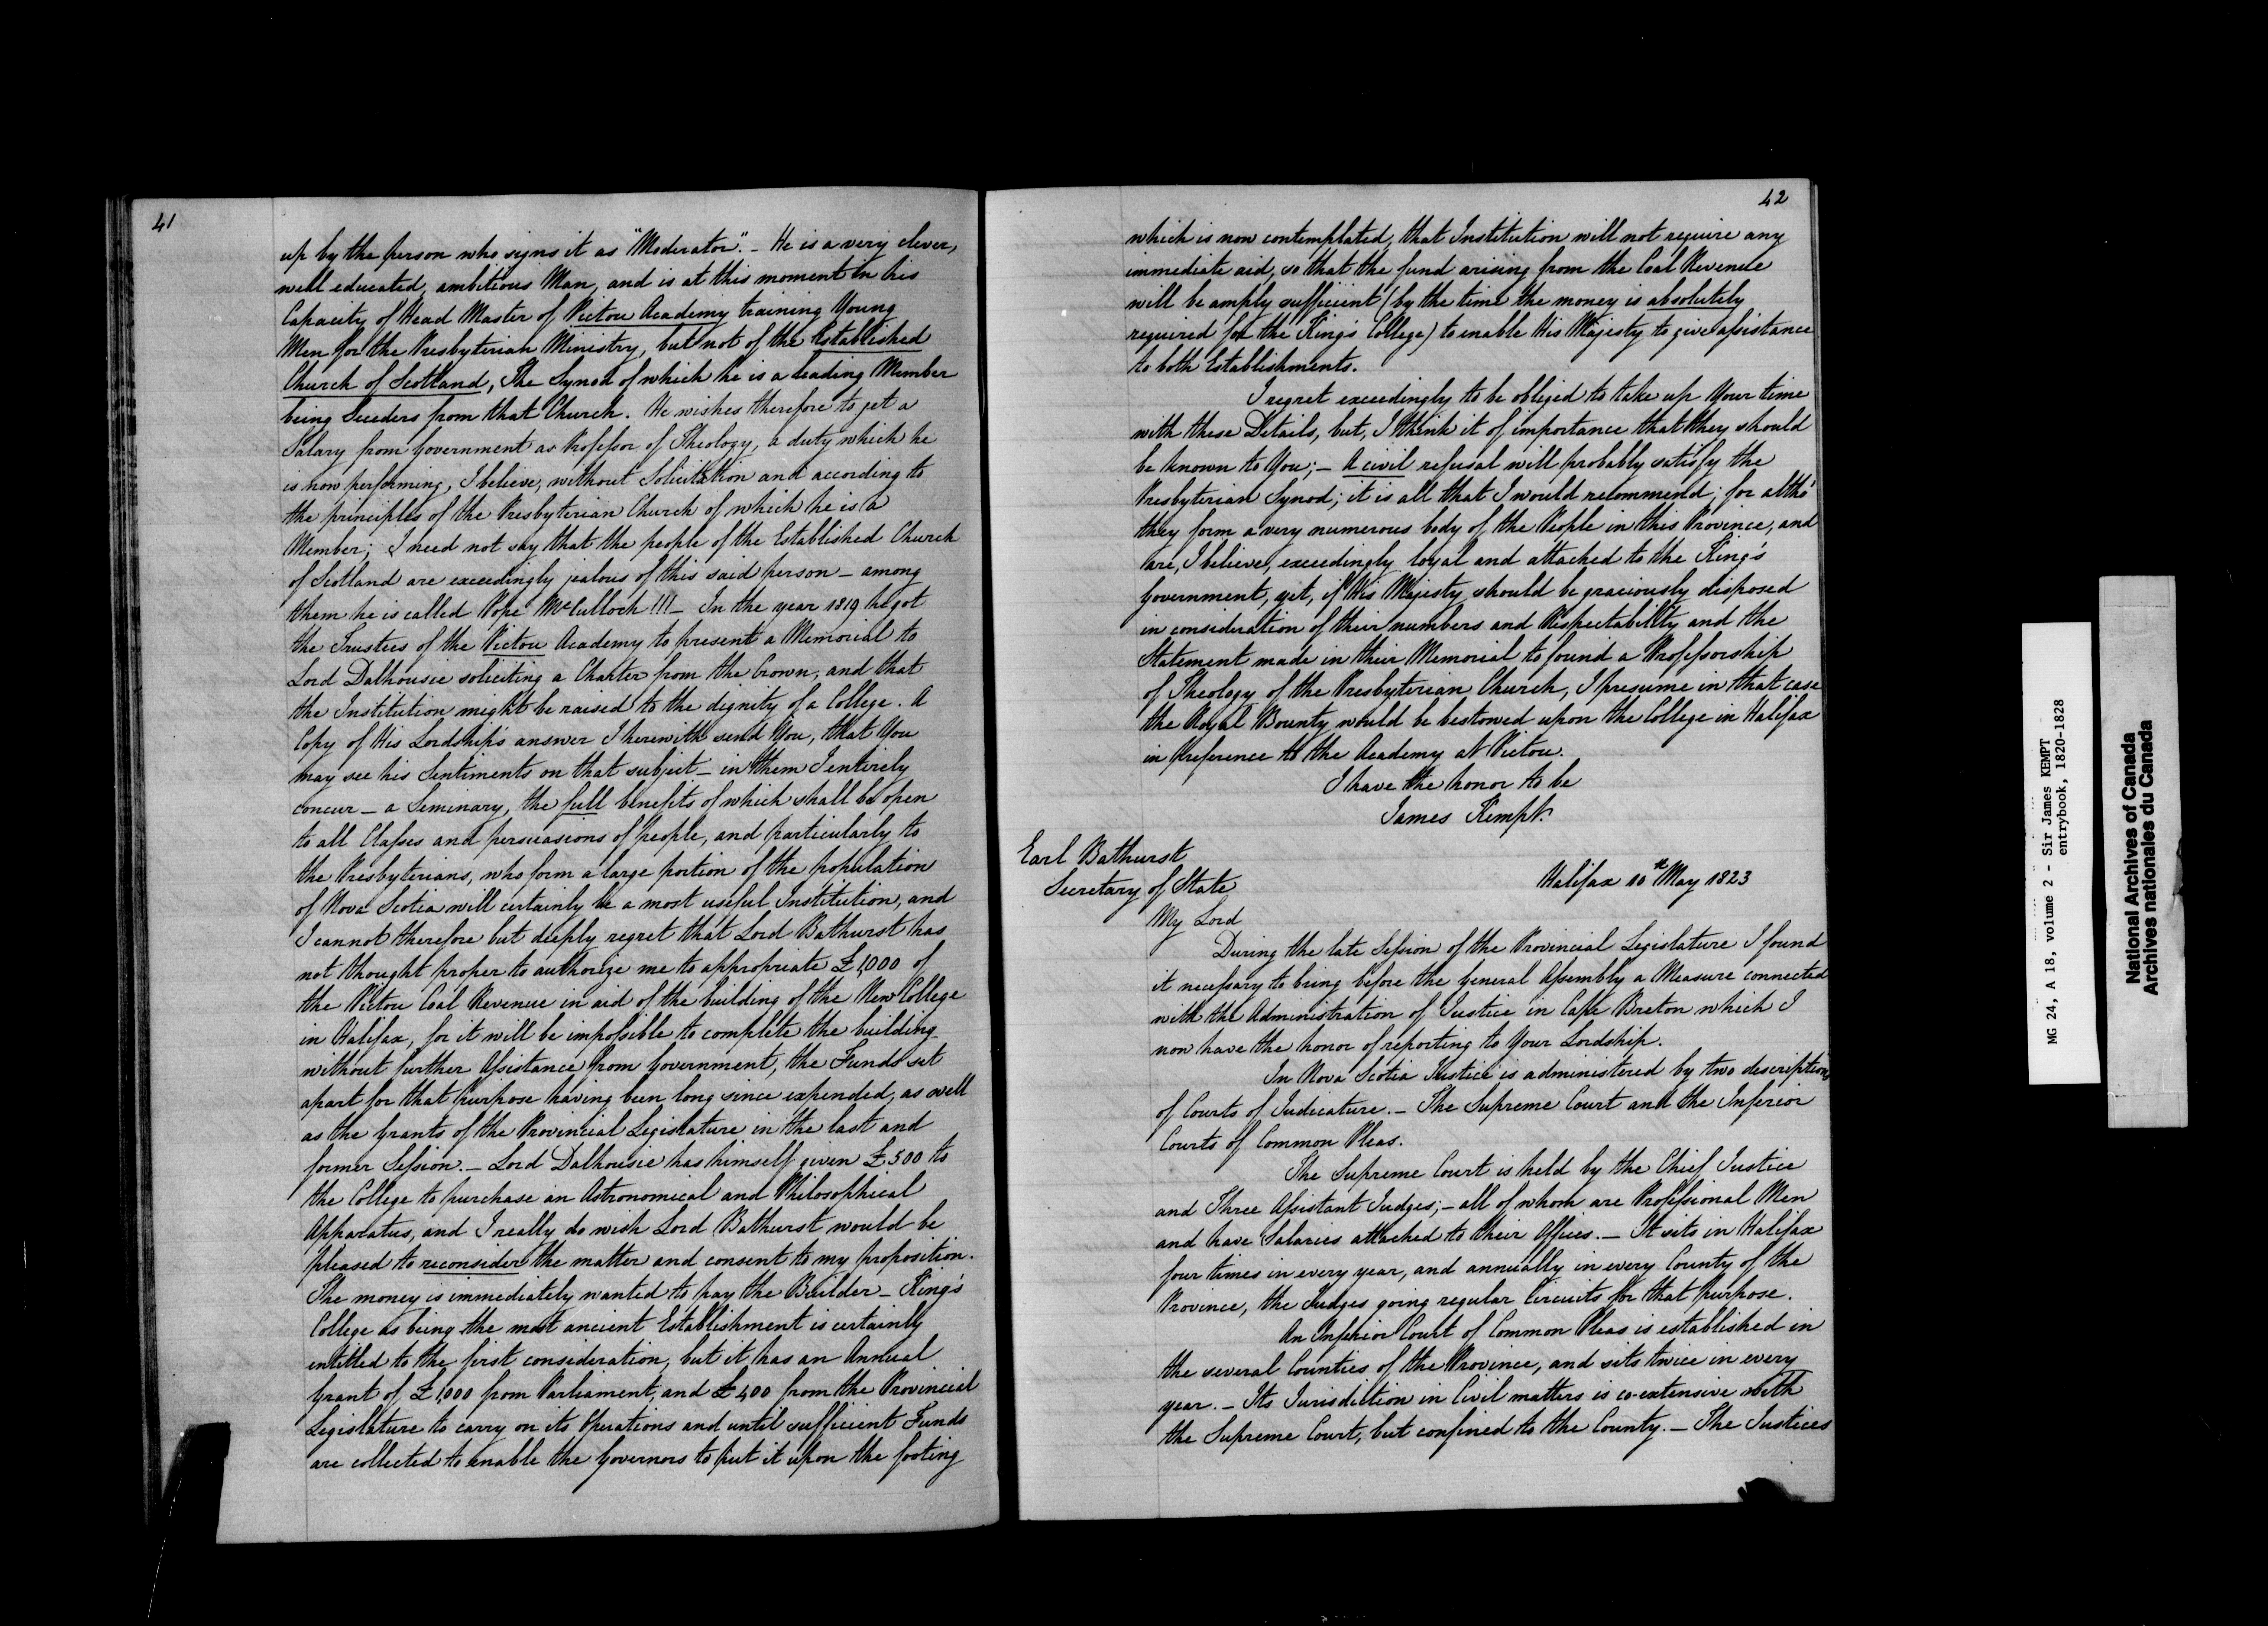 41
up by the person who signs it as "Moderator". - He is a very clever,
well educated, ambitious Man, and is at this moment in his
Capacity of Head Master of Pictou Academy training Young
Men for the Presbyterian Ministry, but not of the Established
Church of Scotland, The Synod of which he is a leading Member
being Seceders from that Church. He wishes therefore to get a
Salary from Government as Professor of Theology, a duty which he
is now performing, I believe, without Solicitation and according to
the principles of the Presbyterian Church of which he is a
Member; I need not say that the people of the Established Church
of Scotland are exceedingly jealous of this said person - among
them he is called Pope McCulloch!!! - In the year 1819 he got
the Trustees of the Pictou Academy to present a Memorial to
Lord Dalhousie soliciting a Charter from the Crown, and that
the Institution might be raised to the dignity of a College. A
Copy of His Lordship's answer I herewith send You, that You
may see his Sentiments on that subject - in them I entirely
concur - a Seminary, the full benefits of which shall be open
to all Classes and persuasions of people, and particularly to
the Presbyterians, who form a large portion of the population
of Nova Scotia will certainly be a most useful Institution, and
I cannot therefore but deeply regret that Lord Bathurst has
not thought proper to authorize me to appropriate £1,000 of
the Pictou Coal Revenue in aid of the building of the New College
in Halifax, for it will be impossible to complete the building
without further Assistance from Government, the Funds set
apart for that purpose having been long since expended, as well
as the Grants of the Provincial Legislature in the last and
former Session. - Lord Dalhousie has himself given £500 to
the College to purchase an Astronomical and Philosophical
Apparatus, and I really do wish Lord Bathurst would be
pleased to reconsider the matter and consent to my proposition.
The money is immediately wanted to pay the Builder - King's
College as being the most ancient Establishment is certainly
entitled to the first consideration, but it has an Annual
Grant of £1,000 from Parliament, and £400 from the Provincial
Legislature to carry on its Operations and until sufficient Funds
are collected to enable the Governors to put it upon the footing
42
which is now contemplated, that Institution will not require any
immediate aid, so that the fund arising from the Coal Revenue
will be amply sufficient (by the time the money is absolutely
required for the King's College) to enable His Majesty to give assistance
to both Establishments.
I regret exceedingly to be obliged to take up Your time
with these Details, but, I think it of importance that they should
be known to You; - A civil refusal will probably satisfy the
Presbyterian Synod; it is all that I would recommend; for altho'
they form a very numerous body of the People in this Province, and
are, I believe, exceedingly loyal and attached to the King's
Government, yet, if His Majesty should be graciously disposed
in consideration of their numbers and Respectability and the
Statement made in their Memorial to found a Professorship
of Theology of the Presbyterian Church, I presume in that case
the Royal Bounty would be bestowed upon the College in Halifax
in Preference to the Academy at Pictou.
I have the honor to be
James Kempt.
Earl Bathurst
Secretary of State
Halifax 10th May 1823
My Lord
During the late Session of the Provincial Legislature I found
it necessary to bring before the General Assembly a Measure connected
with the Administration of Justice in Cape Breton which I
now have the honor of reporting to Your Lordship.
In Nova Scotia Justice is administered by two descriptions
of Courts of Judicature. - The Supreme Court and the Inferior
Courts of Common Pleas.
The Supreme Court is held by the Chief Justice
and Three Assistant Judges; - all of whom are Professional Men
and have Salaries attached to their Offices. - It sits in Halifax
four times in every year, and annually in every County of the
Province, the Judges going regular Circuits for that purpose.
An Inferior Court of Common Pleas is established in
the several Counties of the Province, and sits twice in every
year. - Its Jurisdiction in Civil matters is co-extensive with
the Supreme Court, but confined to the County. - The Justices
MG 24, A 18, volume 2 - Sir James KEMPT
entrybook, 1820-1828
National Archives of Canada
Archives nationales du Canada